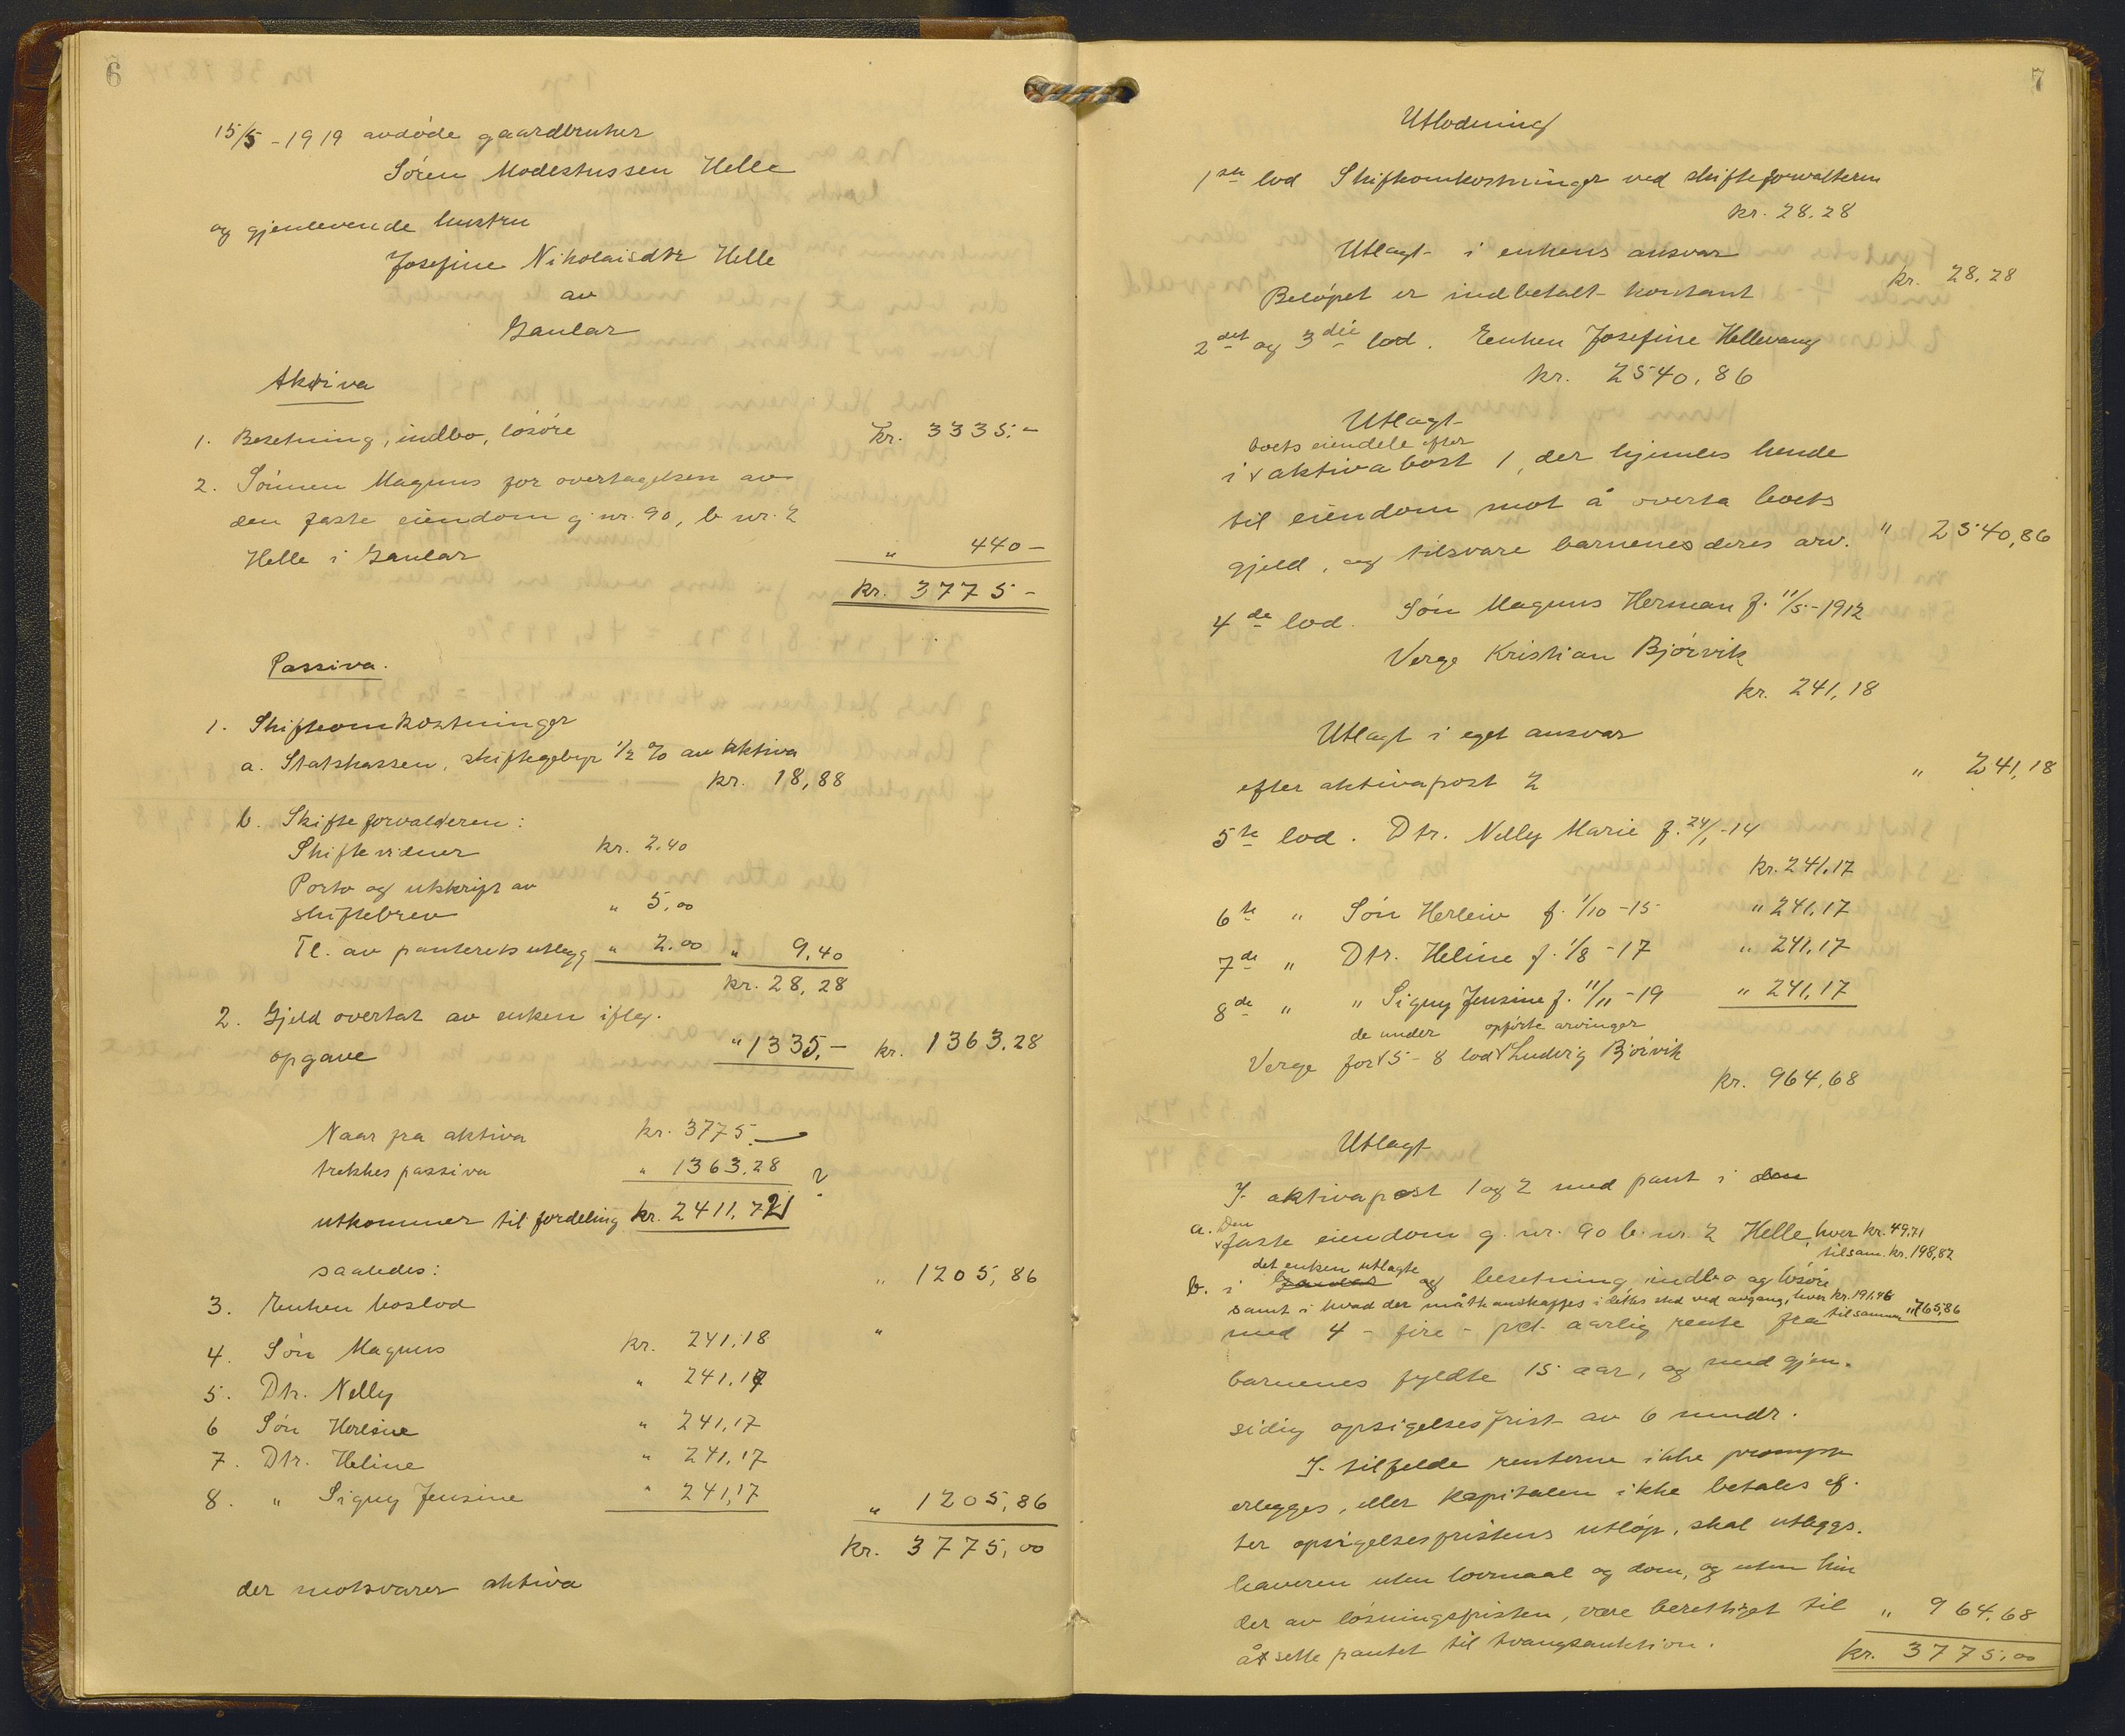 6
15/5 - 1919 avdøde gaardbruker
Søren Modestussen Helle
og gjenlevende hustru
Josefine Nikolaisdtr Helle
av
Gaular
Aktiva
1. Besetning, indbo, løsøre kr. 3335.-
2. Sønnen Magnus for overtagelsen av
den faste eiendom g. nr. 90, b. nr. 2
Helle i Gaular " 440 -
kr. 3775 -
Passiva.
1. Skifteomkostninger
a. Statskassen, skiftegebyr 1/2 % av aktiva
kr. 18,88
b. Skifteforvalderen:
Skiftevidner kr. 2.40
Porto og utskrift av
skiftebrev " 5,00
Tl. av panterets utlegg " 2.00 " 9,40
kr. 28,28
2. Gjeld overtat av enken iflg.
opgave " 1335,- kr. 1363.28
Naar fra aktiva kr. 3775.-
trekkes passiva " 1363.28
utkommer til fordeling kr. 2411,72
saaledes:
3. Enken boslod " 1205,86
4. Søn Magnus kr. 241,18 "
5. Dtr. Nelly " 241.17
6 Søn Herleiv " 241,17
7. Dtr. Heline " 241,17
8. " Signy Jensine " 241,17 " 1205,86
kr. 3775,00
der motsvarer aktiva
7
Utlodning
1ste lod Skifteomkostninger ved skifteforvalteren
kr. 28.28
Utlagt i enkens ansvar
Beløpet er indbetalt kontant kr. 28,28
2det og 3die lod. Enken Josefine Hellevang
kr. 2540,86
Utlagt
boets eiendele efter
i v aktiva post 1, der hjemles hende
til eiendom mot å overta boets
gjeld, og tilsvare barnenes deres arv. " 2540,86
4de lod. Søn Magnus Herman f. 11/5-1912
Verge Kristian Bjørvik
kr. 241,18
Utlagt i eget ansvar
efter aktivapost 2 " 241,18
5te lod. Dtr. Nelly Marie f. 24/1-14
kr. 241,17
6te " Søn Herleiv f. 1/10-15 " 241,17
7de " Dtr. Heline f. 1/8-17 " 241,17
8de " " Signy Jensine f. 11/11-19 " 241,17
de under opførte arvinger
Verge for v 5 - 8 lod v Ludvig Bjørvik
kr. 964,68
Utlagt
I aktivapost 1 og 2 med pant i den
a. Den
v faste eiendom g. nr. 90 b. nr. 2 Helle, hver kr. 49,71
tilsam. kr. 198,82
det enken utlagte
b. i Gaular og besetning, indbo og løsøre
samt i hvad der måtte anskaffes i dettes sted ved avgang, hver kr. 191,46
tilsammen " 765,86
med 4 - fire - pct. aarlig rente fra
barnenes fyldte 15 aar, og med gjen-
sidig opsigelsesfrist av 6 mndr.
I tilfelde renterne ikke prompte
erlegges, eller kapitalen ikke betales ef-
ter opsigelsesfristens utløp, skal utlægs-
haveren uten lovmaal og dom, og uten hin
der av løsningsfristen, være berettiget til " 964,68
åt sette pantet til tvangsauktion. kr. 3775,00